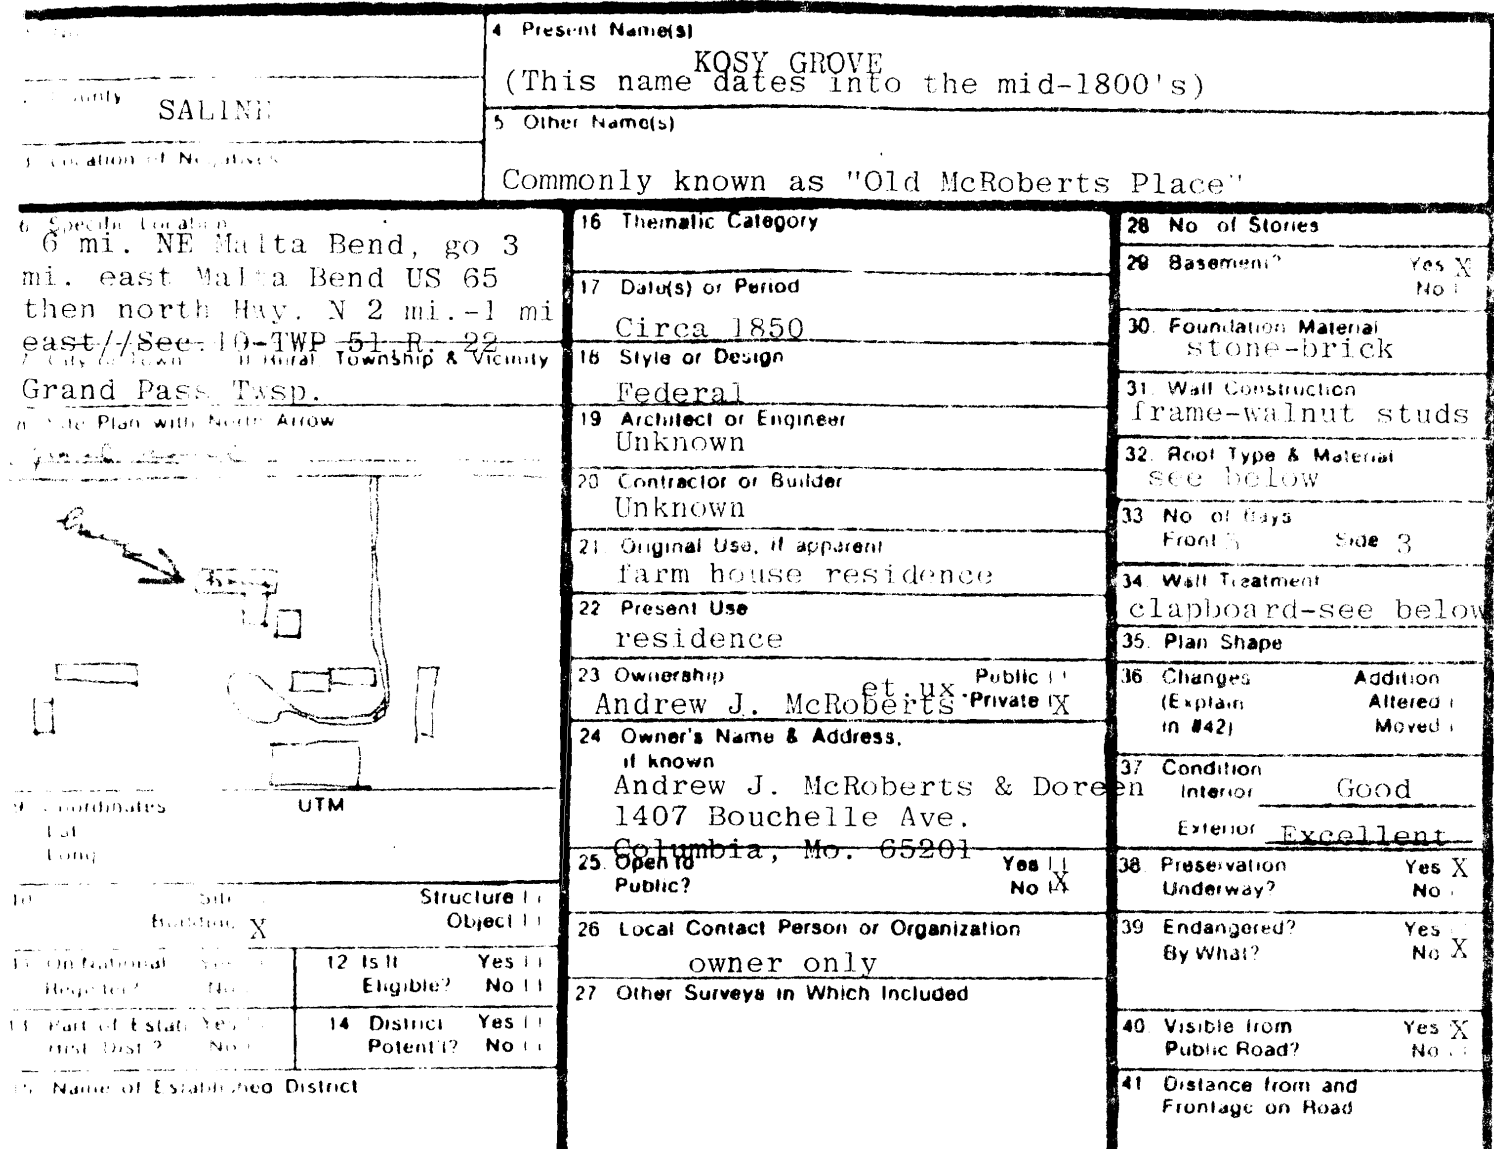 4 Present Name(s)
KOSY GROVE
(This name dates into the mid-1800's)
County
SALINE
5 Other Name(s)
Commonly known as "Old McRoberts Place"
3 Location of Negatives
6 Specific Location
6 mi. NE Malta Bend, go 3
mi. east Malta Bend US 65
then north Hwy. N 2 mi.-1 mi
east//Sec.10-TWP 51 R. 22
7 City or Town If Rural, Township & Vicinity
Grand Pass Twsp.
8 Site Plan with North Arrow
9 Coordinates UTM
Lat
Long
10 Site Structure
Building X Object
11 On National Yes
Register? No
12 Is It Yes
Eligible? No
13 Part of Estab Yes
Hist Dist? No
14 District Yes
Potent'l? No
15 Name of Established District
16 Thematic Category
17 Date(s) or Period
Circa 1850
18 Style or Design
Federal
19 Architect or Engineer
Unknown
20 Contractor or Builder
Unknown
21. Original Use, if apparent
farm house residence
22 Present Use
residence
23 Ownership Public
Andrew J. McRoberts et.ux. Private X
24 Owner's Name & Address,
if known
Andrew J. McRoberts & Doreen
1407 Bouchelle Ave.
Columbia, Mo. 65201
25. Open to Yes
Public? No X
26 Local Contact Person or Organization
owner only
27 Other Surveys in Which Included
28 No of Stories
29 Basement? Yes X
No
30. Foundation Material
stone-brick
31. Wall Construction
frame-walnut studs
32. Roof Type & Material
see below
33 No of Bays
Front Side 3
34. Wall Treatment
clapboard-see below
35. Plan Shape
36 Changes Addition
(Explain Altered
in #42) Moved
37 Condition
Interior Good
Exterior Excellent
38. Preservation Yes X
Underway? No
39 Endangered? Yes
By What? No X
40. Visible from Yes X
Public Road? No
41 Distance from and
Frontage on Road